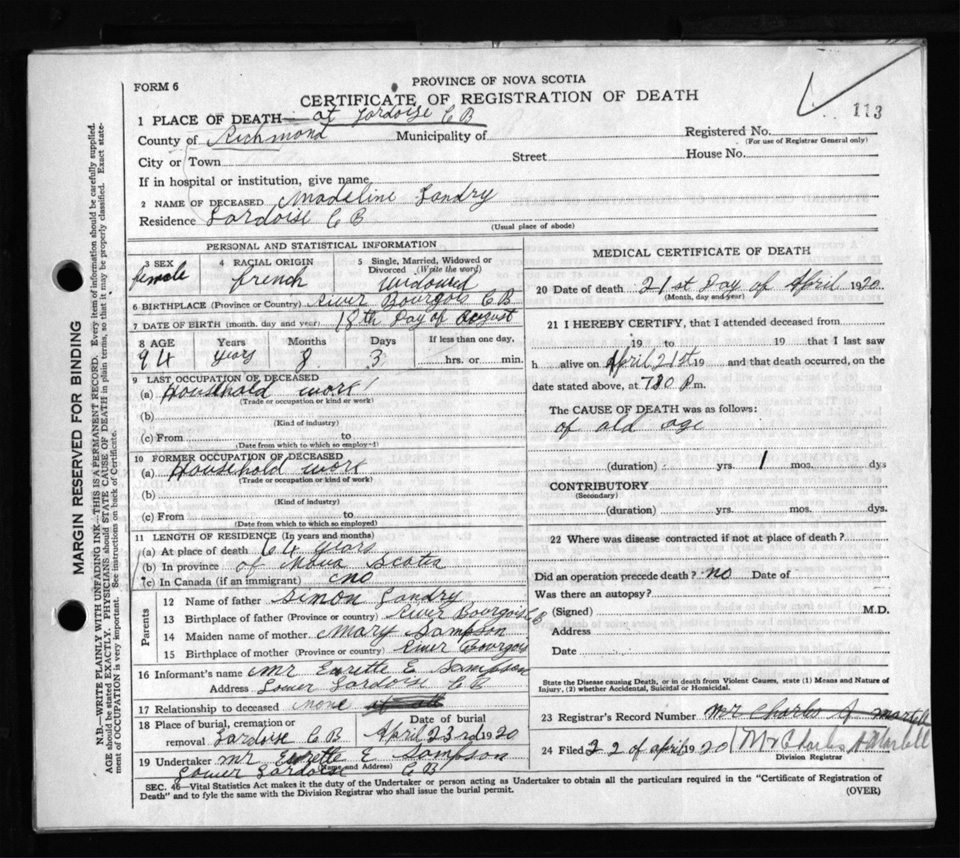 FORM 6
PROVINCE OF NOVA SCOTIA
CERTIFICATE OF REGISTRATION OF DEATH
113
1 PLACE OF DEATH at Lardoise C B
County of Richmond Municipality of Registered No.
(For use of Registrar General only)
City or Town Street House No.
If in hospital or institution, give name
2 NAME OF DECEASED Madeline Landry
Residence Lardoise C B
(Usual place of abode)
PERSONAL AND STATISTICAL INFORMATION
3 SEX 4 RACIAL ORIGIN 5 Single, Married, Widowed or Divorced (Write the word)
female french Widowed
6 BIRTHPLACE (Province or Country) River Bourgois C B
7 DATE OF BIRTH (month, day and year) 18th Day of August
8 AGE Years Months Days If less than one day,
94 years 8 3 hrs. or min.
9 LAST OCCUPATION OF DECEASED
(a) Household work
(Trade or occupation or kind or work)
(b)
(Kind of industry)
(c) From to
(Date from which to which so employ-1)
10 FORMER OCCUPATION OF DECEASED
(a) Household work
(Trade or occupation or kind of work)
(b)
(Kind of industry)
(c) From to
(Date from which to which so employed)
11 LENGTH OF RESIDENCE (In years and months)
(a) At place of death 64 years
(b) In province of Nova Scotia
(c) In Canada (if an immigrant) no
Parents
12 Name of father Simon Landry
13 Birthplace of father (Province or country) River Bourgois C B
14 Maiden name of mother Mary Sampson
15 Birthplace of mother (Province or country) River Bourgois
16 Informant's name Mr E Sampson
Address Lower Lardoise C B
17 Relationship to deceased none at all
18 Place of burial, cremation or removal Lardoise C B
Date of burial April 23rd 1920
19 Undertaker Mr E Sampson
(Name and Address)
Lower Lardoise C B
MEDICAL CERTIFICATE OF DEATH
20 Date of death 21st Day of April 1920
(Month, day and year)
21 I HEREBY CERTIFY, that I attended deceased from
19 to 19 that I last saw
h alive on April 21st 19 and that death occurred, on the
date stated above, at 7 30 P m.
The CAUSE OF DEATH was as follows:
of old age
(duration) yrs. 1 mos. dys
CONTRIBUTORY
(Secondary)
(duration) yrs. mos. dys.
22 Where was disease contracted if not at place of death?
Did an operation precede death? no Date of
Was there an autopsy?
(Signed) M.D.
Address
Date
State the Disease causing Death, or in death from Violent Causes, state (1) Means and Nature of
Injury, (2) whether Accidental, Suicidal or Homicidal.
23 Registrar's Record Number Mr Charles A Martell
24 Filed 22 of April 1920 Mr Charles A Martell
Division Registrar
SEC. 46—Vital Statistics Act makes it the duty of the Undertaker or person acting as Undertaker to obtain all the particulars required in the "Certificate of Registration of
Death" and to fyle the same with the Division Registrar who shall issue the burial permit.
(OVER)
MARGIN RESERVED FOR BINDING
N.B.—WRITE PLAINLY WITH UNFADING INK—THIS IS A PERMANENT RECORD. Every item of information should be carefully supplied.
AGE should be stated EXACTLY. PHYSICIANS should STATE CAUSE OF DEATH in plain terms, so that it may be properly classified. Exact state-
ment of OCCUPATION is very important. See instructions on back of Certificate.